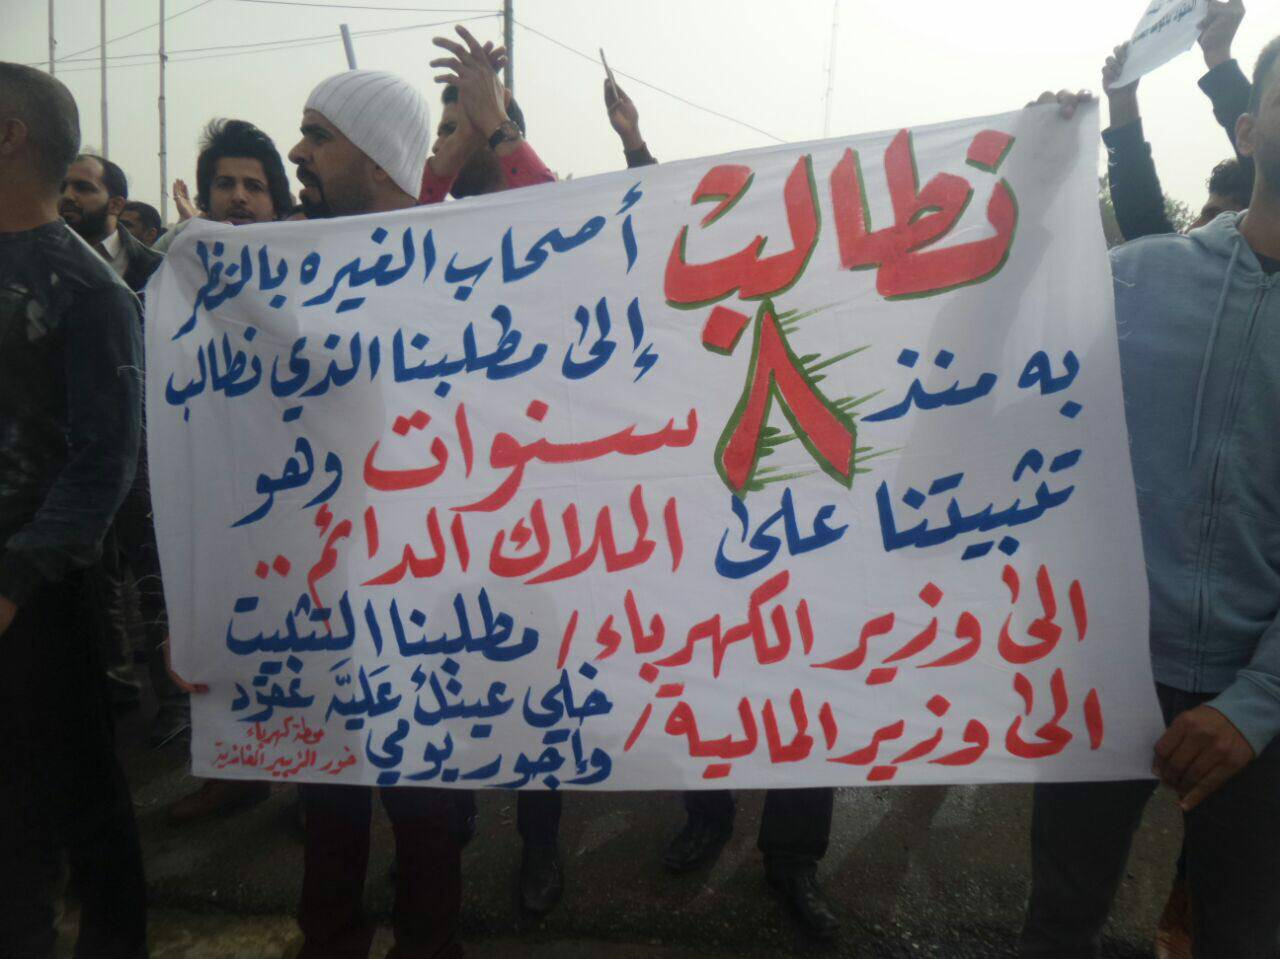 نطالب أصحاب الغيره بالنظر
إلى مطلبنا الذي نطالب
به منذ ٨ سنوات وهو
تثبيتنا على الملاك الدائم ..
الى وزير الكهرباء / مطلبنا التثبيت
الى وزير المالية / خلي عينك عليه عقود
وإجور يومي
محطة كهرباء
خور الزبير الغازية